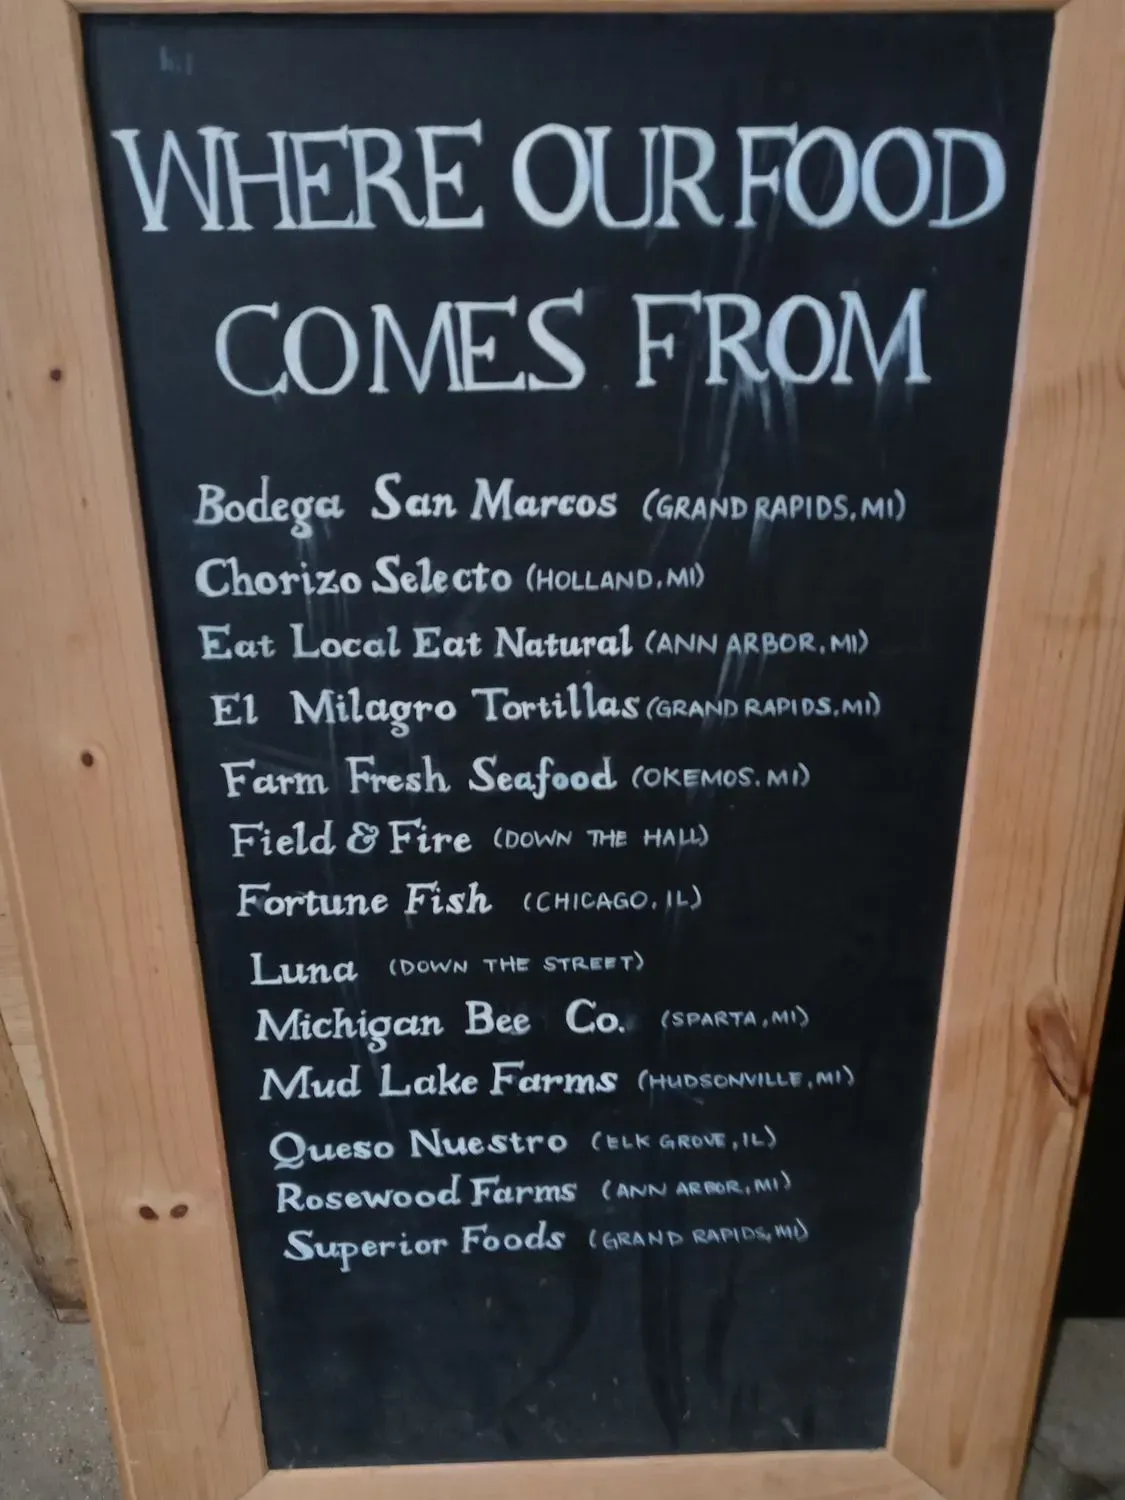 WHERE OUR FOOD
COMES FROM
Bodega San Marcos (GRAND RAPIDS, MI)
Chorizo Selecto (HOLLAND, MI)
Eat Local Eat Natural (ANN ARBOR, MI)
El Milagro Tortillas (GRAND RAPIDS, MI)
Farm Fresh Seafood (OKEMOS, MI)
Field & Fire (DOWN THE HALL)
Fortune Fish (CHICAGO, IL)
Luna (DOWN THE STREET)
Michigan Bee Co. (SPARTA, MI)
Mud Lake Farms (HUDSONVILLE, MI)
Queso Nuestro (ELK GROVE, IL)
Rosewood Farms (ANN ARBOR, MI)
Superior Foods (GRAND RAPIDS, MI)